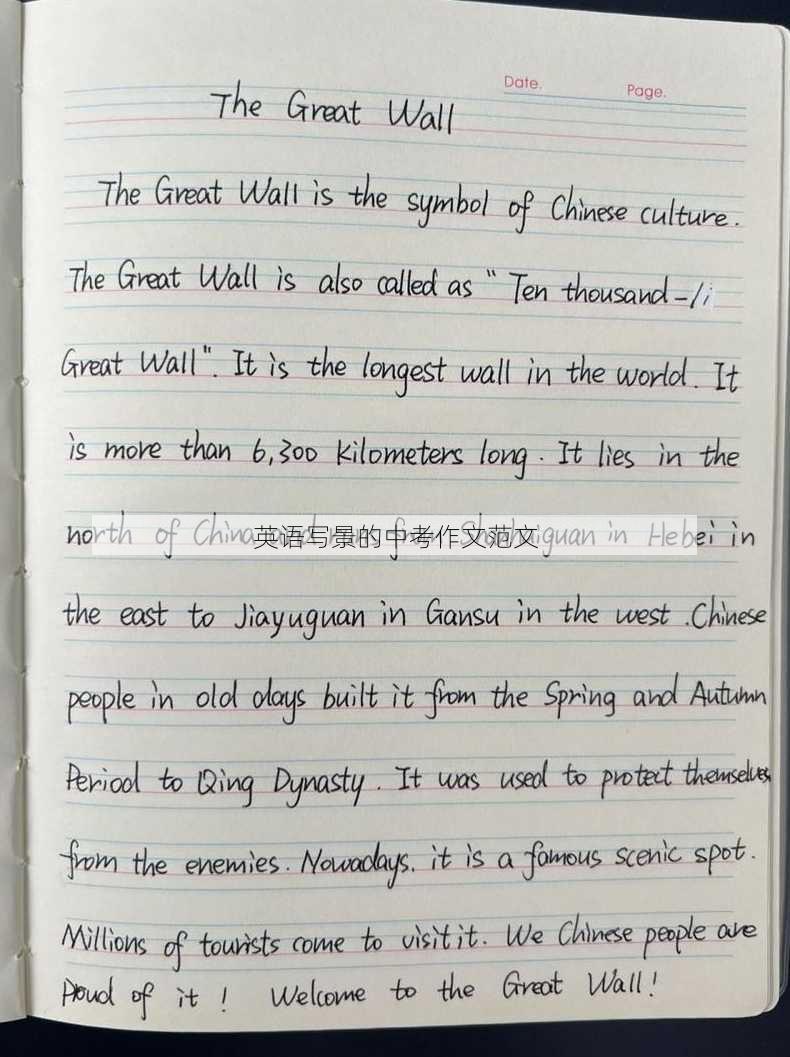 Date.
Page.
The Great Wall
The Great Wall is the symbol of Chinese culture.
The Great Wall is also called as "Ten thousand-li
Great Wall". It is the longest wall in the world. It
is more than 6,300 kilometers long. It lies in the
north of China from Shanhaiguan in Hebei in
英语写景的中考作文范文
the east to Jiayuguan in Gansu in the west. Chinese
people in old days built it from the Spring and Autumn
Period to Qing Dynasty. It was used to protect themselves
from the enemies. Nowadays. it is a famous scenic spot.
Millions of tourists come to visit it. We Chinese people are
Proud of it! Welcome to the Great Wall!